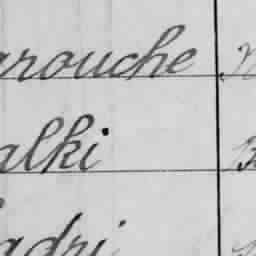 arouche
alki
adri